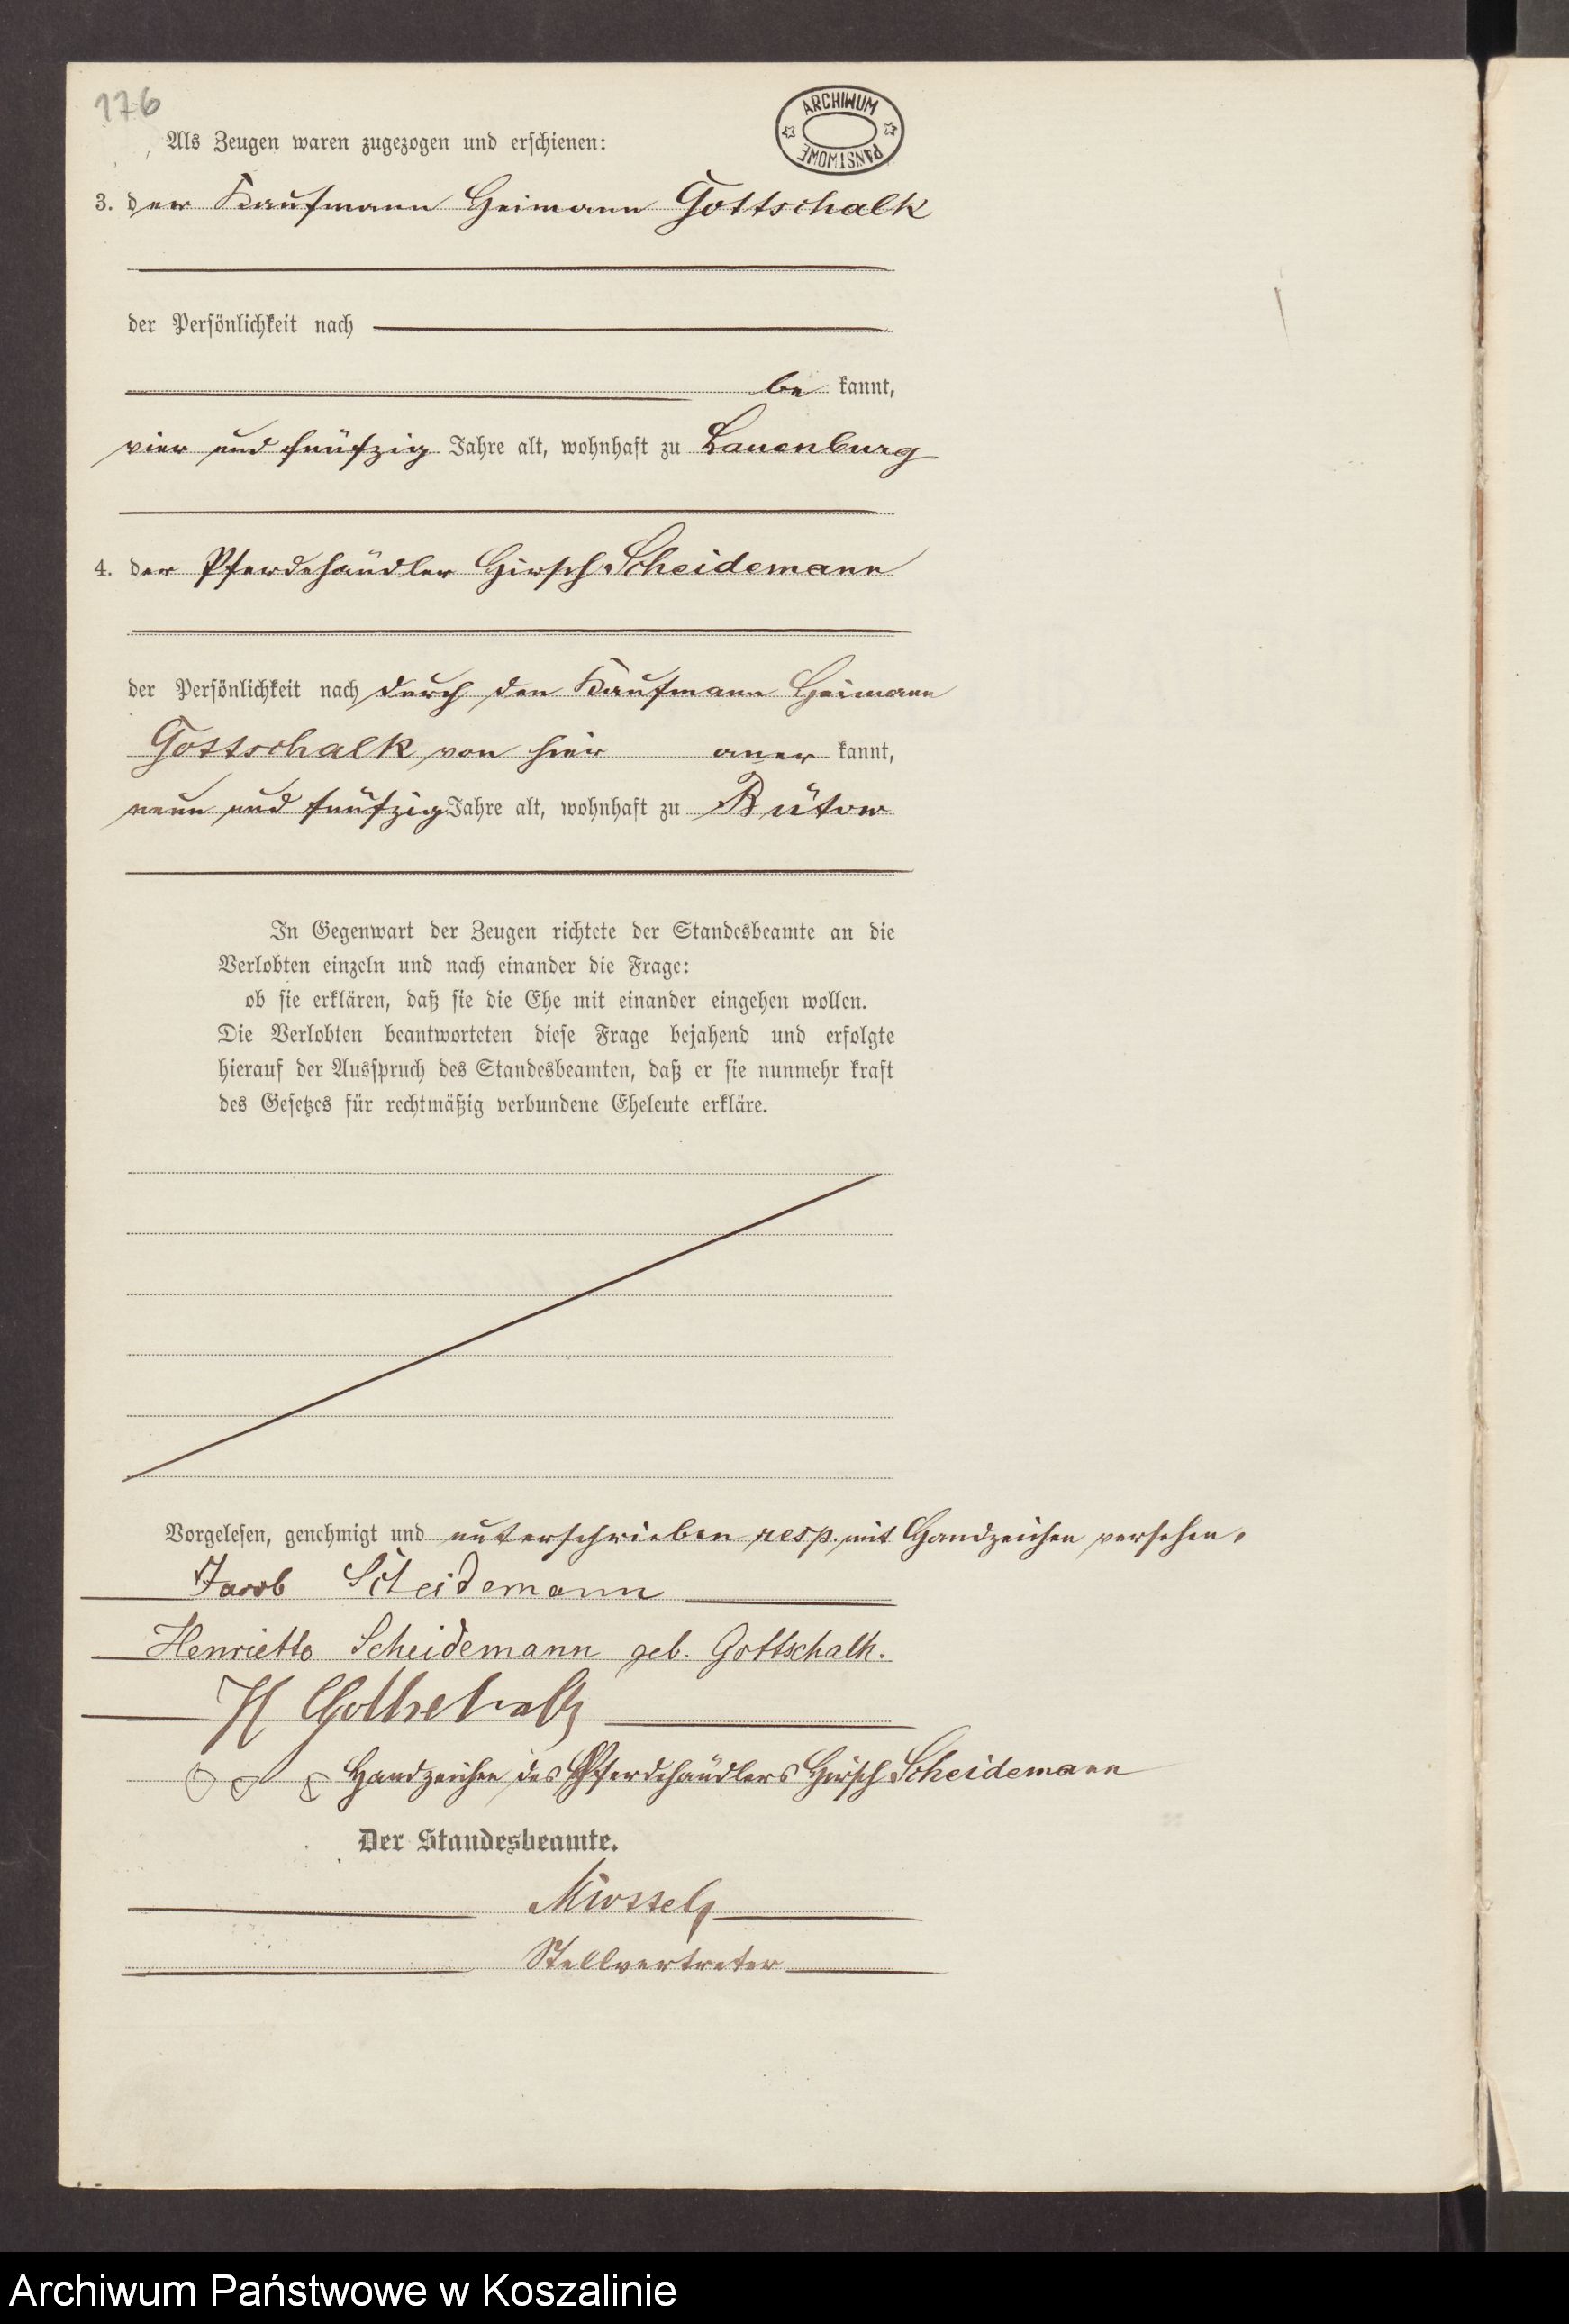 176
ARCHIWUM PAŃSTWOWE
Als Zeugen waren zugezogen und erschienen:
3. der Kaufmann Heimann Gottschalk
der Persönlichkeit nach
be kannt,
vier und fünfzig Jahre alt, wohnhaft zu Lauenburg
4. der Pferdehändler Hirsch Scheidemann
der Persönlichkeit nach durch den Kaufmann Heimann
Gottschalk von hier aner kannt,
neun und fünfzig Jahre alt, wohnhaft zu Bütow
In Gegenwart der Zeugen richtete der Standesbeamte an die
Verlobten einzeln und nach einander die Frage:
ob sie erklären, daß sie die Ehe mit einander eingehen wollen.
Die Verlobten beantworteten diese Frage bejahend und erfolgte
hierauf der Ausspruch des Standesbeamten, daß er sie nunmehr kraft
des Gesetzes für rechtmäßig verbundene Eheleute erkläre.
Vorgelesen, genehmigt und unterschrieben resp. mit Handzeichen versehen.
Jacob Scheidemann
Henriette Scheidemann geb. Gottschalk.
H Gottschalk
Handzeichen des Pferdehändlers Hirsch Scheidemann
Der Standesbeamte.
Stellvertreter
Archiwum Państwowe w Koszalinie